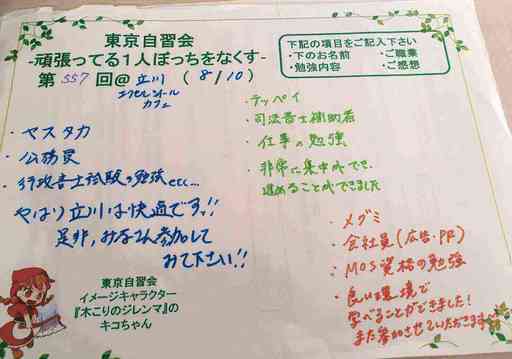 東京自習会
-頑張ってる1人ぼっちをなくす-
第557回@立川 (8/10)
エクセルシオール
カフェ
下記の項目をご記入下さい
・下のお名前 ・ご職業
・勉強内容 ・ご感想
・ヤスタカ
・公務員
・行政書士試験の勉強etc...
やはり立川は快適です!!
是非、みなさん参加して
みて下さい!!
・テッペイ
・司法書士補助者
・仕事の勉強
・非常に集中ができ、
進めることができました
・メグミ
・会社員(広告・PR)
・MOS資格の勉強
・良い環境で
学べることができました!
また参加させていただきます
東京自習会
イメージキャラクター
『木こりのジレンマ』の
キコちゃん